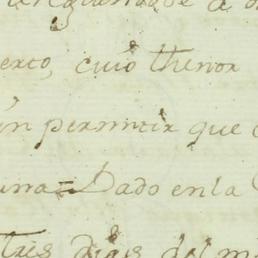 erto, cuio thenor
permitir que
una = Dado en la
tres dias del m